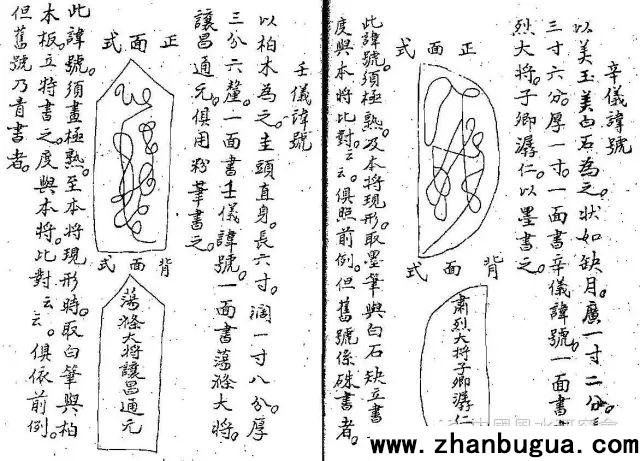 辛儀諱號
以美玉美白石為之。狀如缺月。廣一寸二分。
三寸六分。厚一寸。一面書辛儀諱號。一面書
烈大将子卿潺仁。以墨書之。
正面式
背面式
肅烈大將子卿潺仁
此諱號須極熟。及本将現形。取墨筆與白石缺立書
度與本将比對云云。俱照前例。但舊號係硃書者。
壬儀諱號
以柏木為之。圭頭直身。長六寸。濶一寸八分。厚
三分六釐。一面書壬儀諱號。一面書蕩滌大将
讓昌通元。俱用粉筆書之。
正面式
背面式
蕩滌大將讓昌通元
此諱號須畫極熟。至本将現形時。取白筆與柏
木板。立将書之。度與本将。比對云云。俱依前例。
但舊號乃青書者。
www.zhanbugua.com